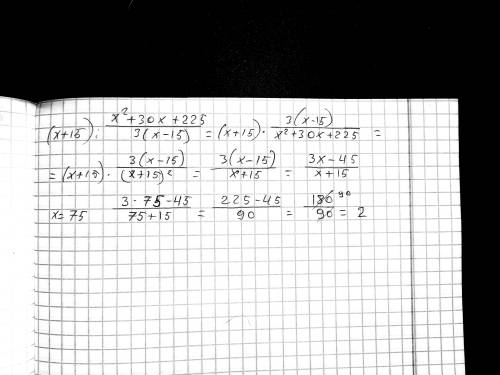 (x+15) : \frac{x²+30x+225}{3(x-15)} = (x+15) · \frac{3(x-15)}{x²+30x+225} =
= (x+15) · \frac{3(x-15)}{(x+15)²} = \frac{3(x-15)}{x+15} = \frac{3x-45}{x+15}
x=75 \frac{3·75-45}{75+15} = \frac{225-45}{90} = \frac{180}{90} = 2